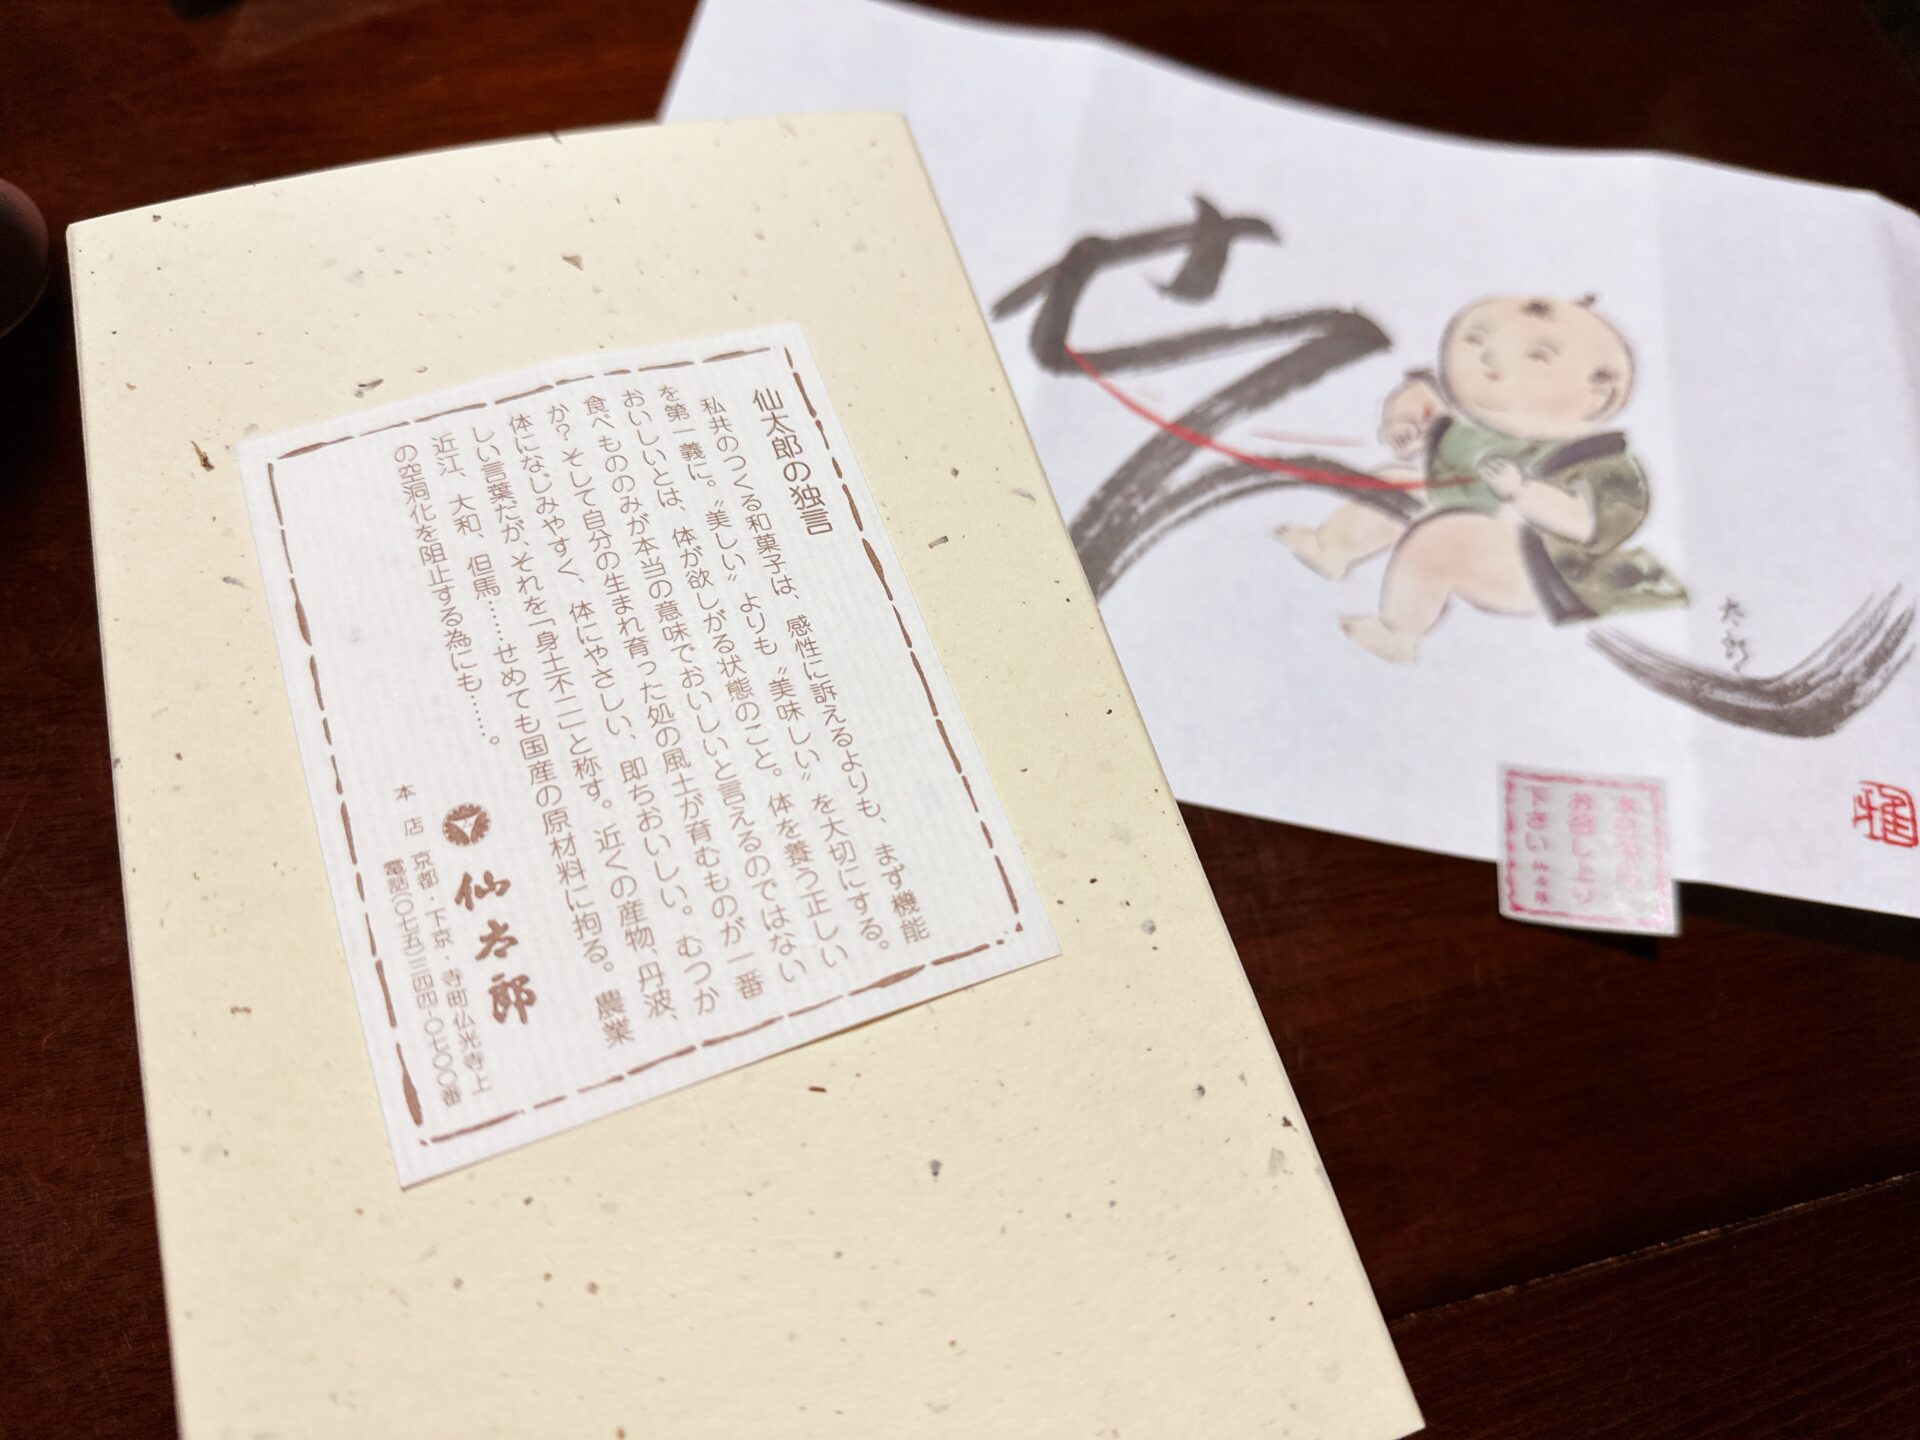 仙太郎の独言
私共のつくる和菓子は、感性に訴えるよりも、まず機能
を第一義に。〝美しい〟よりも〝美味しい〟を大切にする。
おいしいとは、体が欲しがる状態のこと。体を養う正しい
食べもののみが本当の意味でおいしいと言えるのではない
か？そして自分の生まれ育った処の風土が育むものが一番
体になじみやすく、体にやさしい、即ちおいしい。むつか
しい言葉だが、それを「身土不二」と称す。近くの産物、丹波、
近江、大和、但馬……せめても国産の原材料に拘る。農業
の空洞化を阻止する為にも……。
仙太郎
本店 京都・下京・寺町仏光寺上
電話(〇七五)三四四-〇七〇〇番
せん
太郎
本日中に
お召し上り
下さい